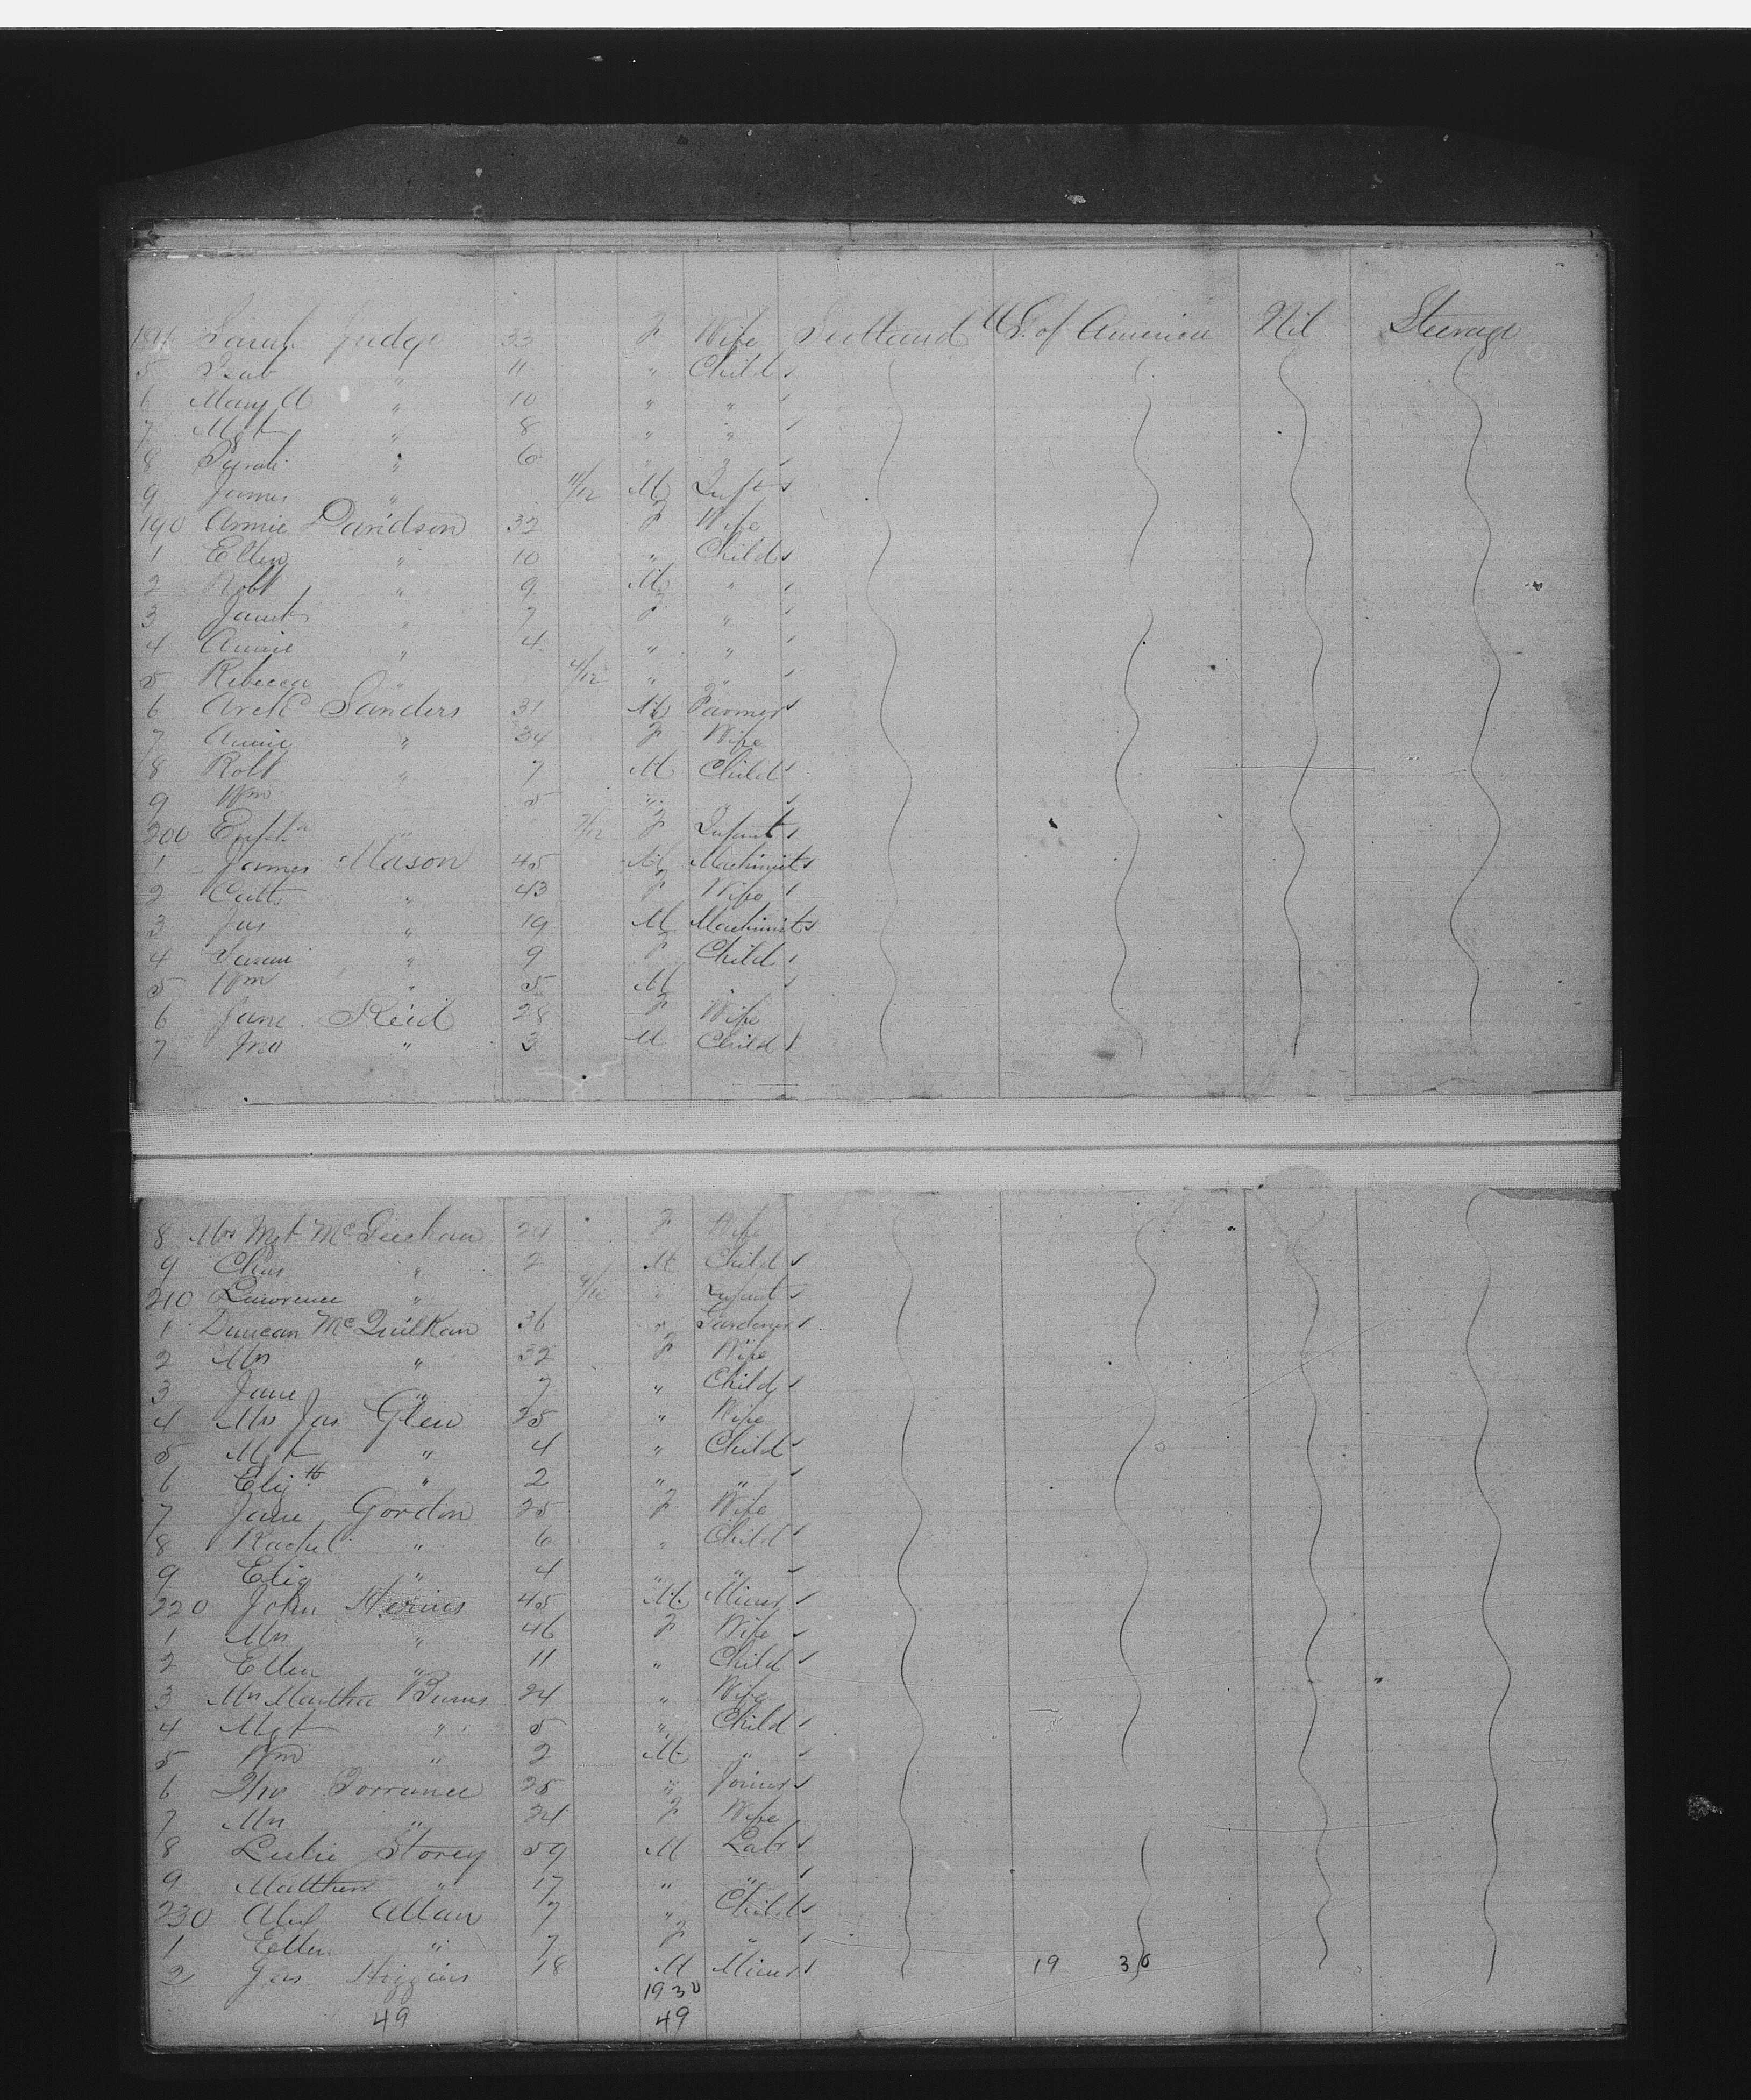 184 Sarah Judge 33 F Wife Scotland U.S. of America Nil Steerage
5 Isab " 11 " Child
6 Mary A " 10 " "
7 Mgt " 8 " "
8 Sarah " 6 " "
9 James " 11/12 M Inft
190 Annie Davidson 32 F Wife
1 Ellen " 10 " Child
2 Robt " 9 M "
3 Janet " 7 F "
4 Annie " 4 " "
5 Rebecca " 4/12 " "
6 Arch Sanders 31 M Farmer
7 Annie " 34 F Wife
8 Robt " 7 M Child
9 Wm 5 "
200 " 7/12 F Infant
1 James Mason 45 M Machinist
2 Cath " 43 F Wife
3 Jas " 19 M Machinist
4 " 9 F Child
5 Wm " 5 M
6 Jane Reid 28 F Wife
7 Jno " 3 M Child
8 Mrs Mgt 24 F Wife
9 Chas " 2 M Child
210 Lawrence " " Infant
1 Duncan McQuilkan 36 " Gardener
2 Mrs " 32 F Wife
3 Jane " 7 " Child
4 Mrs Jas Glen 25 " Wife
5 Mgt " 4 " Child
6 Elizth " 2 " "
7 Jane Gordon 25 F Wife
8 Rachel " 6 " Child
9 Eliz " 4 " "
220 John 45 M Miner
1 Mrs " 46 F Wife
2 Ellen " 11 " Child
3 Mrs Martha Burns 24 " Wife
4 Mgt " 5 " Child
5 Wm " 2 M "
6 Thos Torrance 25 " Joiner
7 Mrs " 24 F Wife
8 Leslie Storey 59 M Labr
9 Matthew " 17 " "
230 Alex Allan 7 " Child
1 Ellen " 7 F "
2 Jas Higgins 18 M Miner 19 30
19 30
49 49